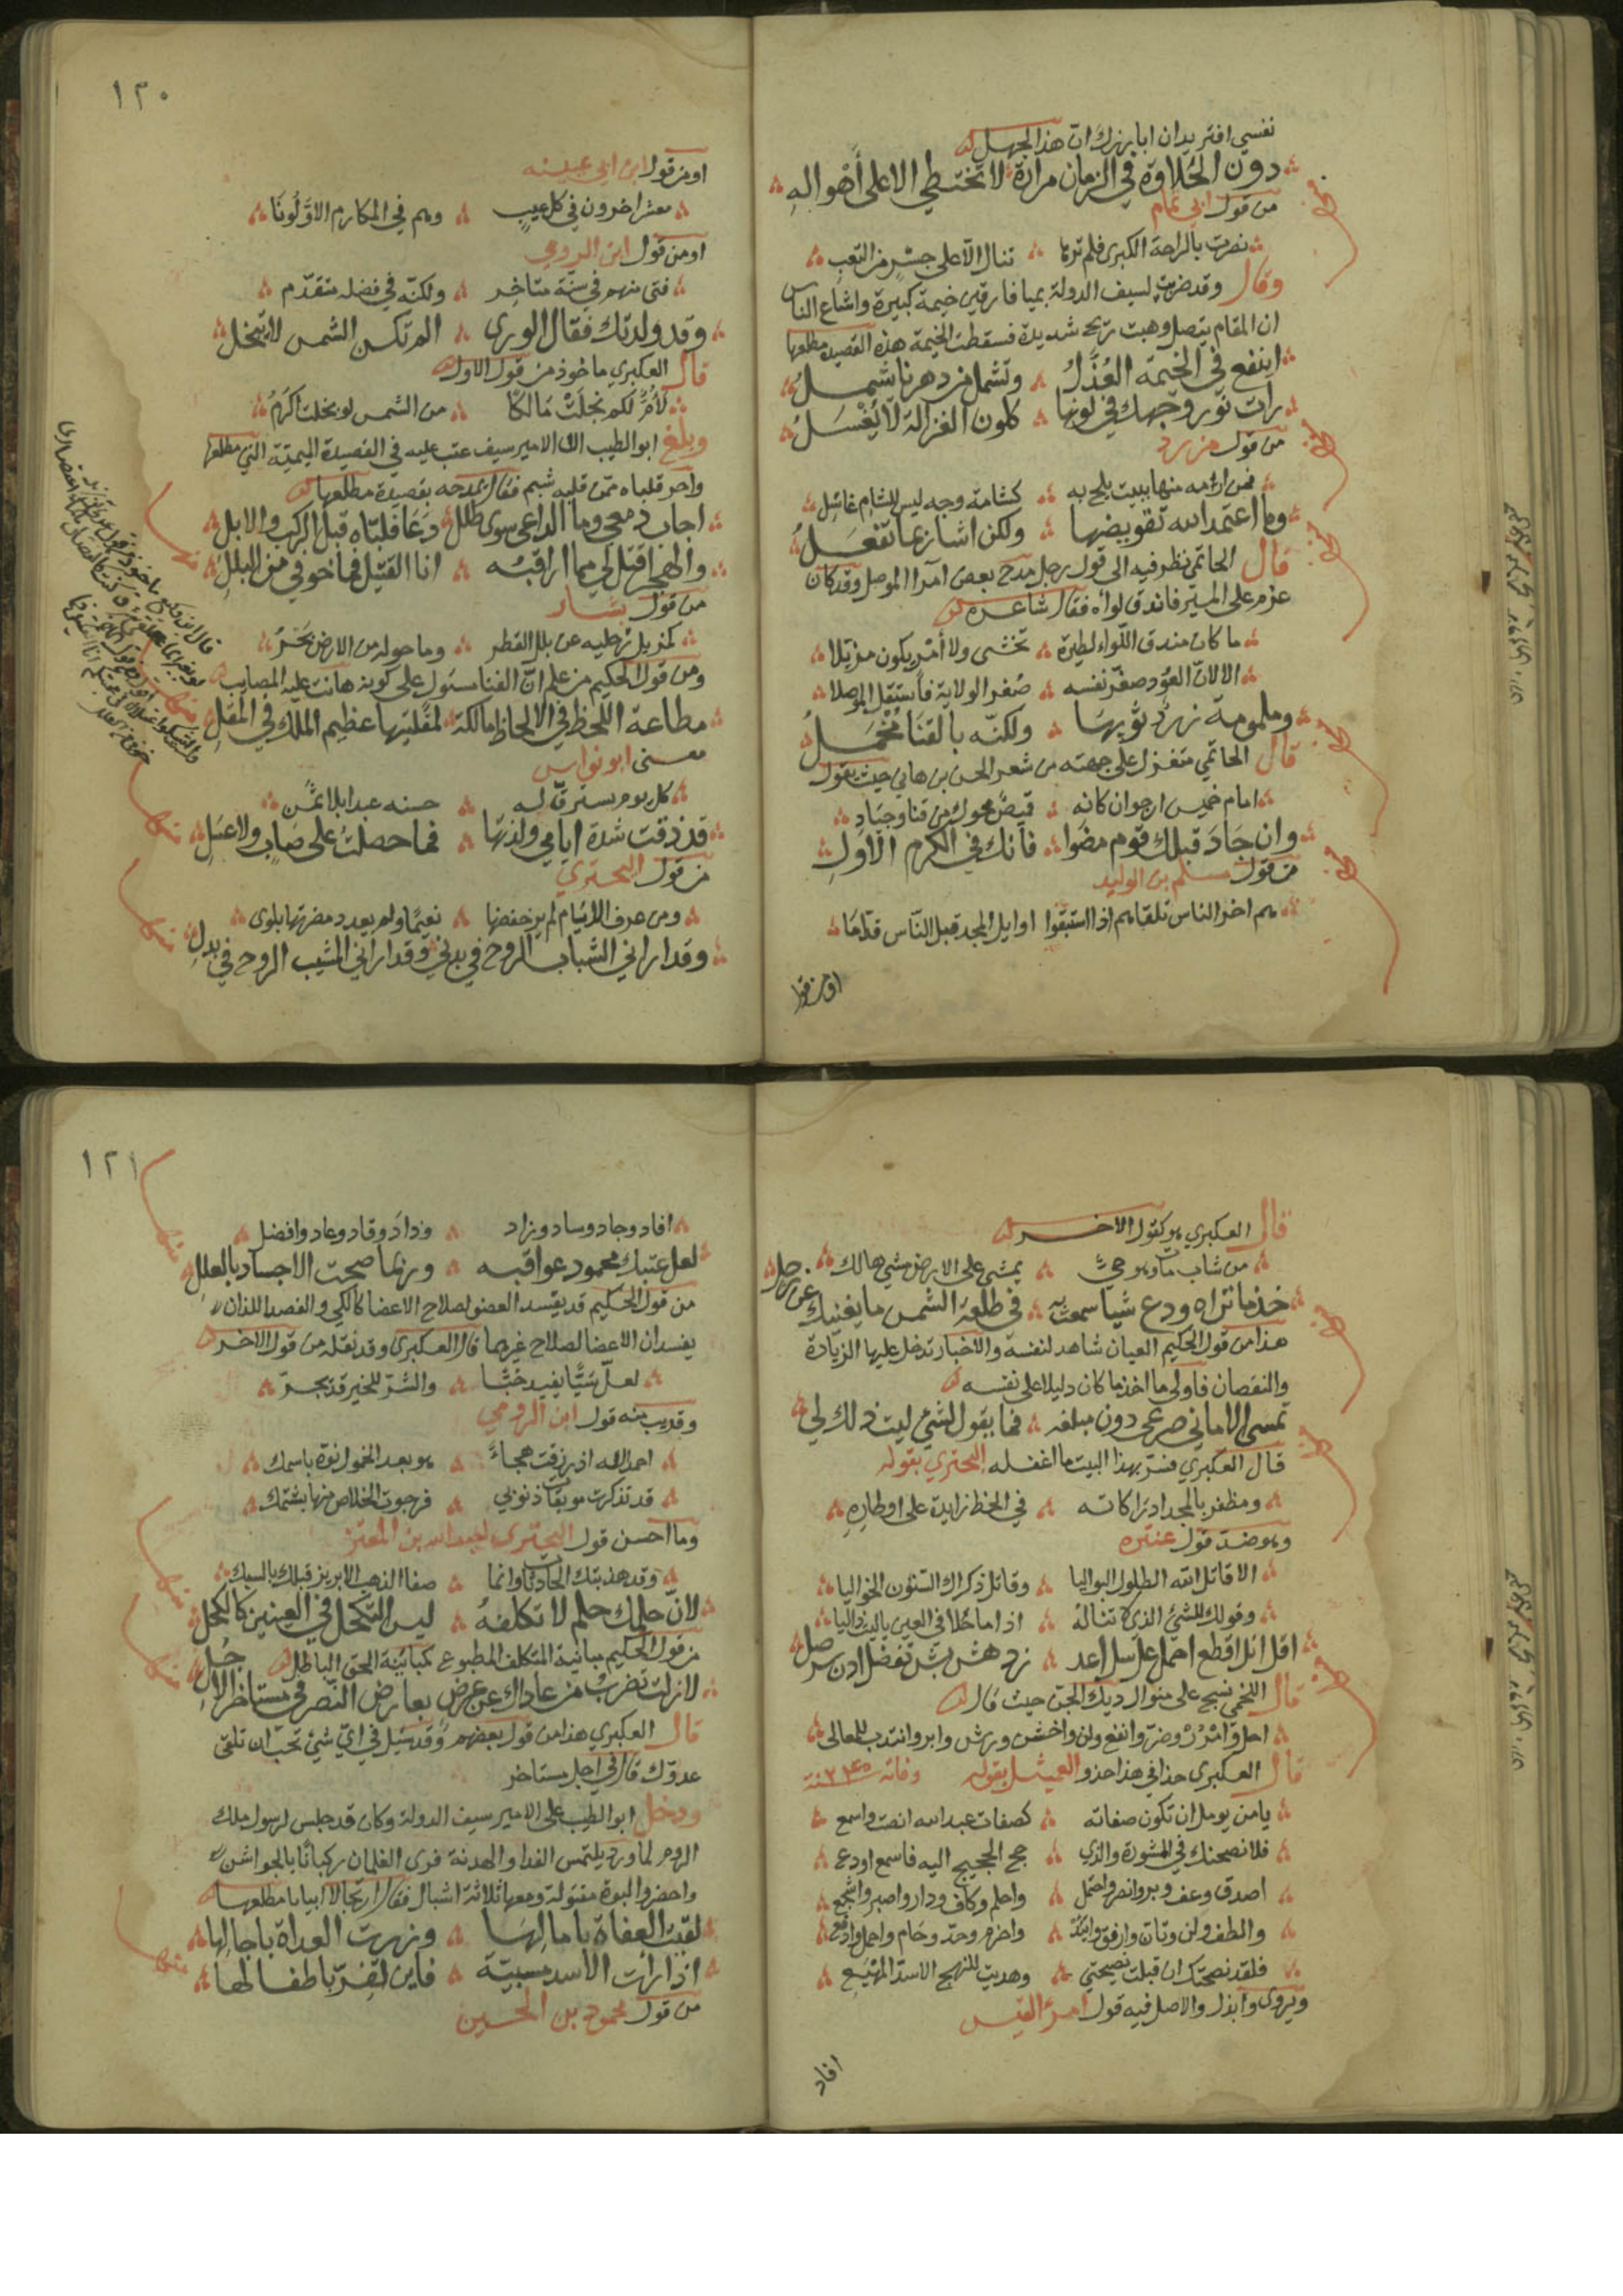 نفسي افتريدان ابا يزيد ان هذا الجهل
دون الحلاوة في الزمان مرارة لا تختطي الا على أهواله
من قول ابي تمام
بصرت بالراحة الكبرى فلم ترها تنال الا على جسر من التعب
وقال وقد ضربت لسيف الدولة بميا فارقين خيمة كبيرة واشاع الناس
ان المقام يتصل وهبت ريح شديدة فسقطت الخيمة هذه القصيدة مطلعها
اينفع في الخيمة العذل وتشمل من دهرنا يشمل
رات نور وجهك في لونها كلون الغزالة لا يغسل
من قول مزرد
فمن ارمه منها ببيت يلح به كشامة وجه ليس للشام غاسل
وما اعتمد الله تقويضها ولكن اشار بما تفعل
قال الحاتمي نظر فيه الى قول رجل مدح بعض امرآ الموصل وقد كان
عزم على المسير فاندق لوآه فقال شاعره
ما كان مندق اللواء لطيرة تخشى ولا أمر يكون مزيلا
الا لان العود صغر نفسه صغر الولاية فاستقل الموصلا
وملمومة زرد ثوبها ولكنه بالقنا مخمل
قال الحاتمي متغزل على جهته من شعر الحسن بن هاني حيث يقول
امام خميس ارجوان كانه قميص محوك من قنا وجياد
وان جاد قبلك قوم مضوا فانك في الكرم الاول
من قول مسلم بن الوليد
هم اخر الناس تلقاهم اذا استبقوا اوايل المجد قبل الناس قداما
او من قول
١٢٠
او من قول ابن ابي عيينه
معشر اخرون في كل عيب وهم في المكارم الاولونا
او من قول ابن الرومي
فتى منهم في سنه متاخر ولكنه في فضله متقدم
وقد ولدتك فقال الورى الم تكن الشمس لا تنجل
قال العكبري ماخوذ من قول الاول
لأم لكم نجلت مالكا من الشمس لو نجلت اكرم
وبلغ ابو الطيب ان الامير سيف عتب عليه في القصيدة الميمية التي مطلعها
واحر قلباه ممن قلبه شبم فقال يمدحه بقصيدة مطلعها
اجاب دمعي وما الداعي سوى طلل دعا فلباه قبل الركب والابل
والهجر اقتل لي مما اراقبه انا الغريق فما خوفي من البلل
من قول بشار
كمزيل رجليه عن بلل القطر وما حوله من الارض بحر
ومن قول الحكيم من علم ان الفنا مستول على كونه هانت عليه المصايب
مطاعة اللحظ في الالحاظ مالكة لمقلتيها عظيم الملك في المقل
معنى ابو نواس
كل يوم يسترق له حسنه عبدا بلا ثمن
قد ذقت شدة ايامي ولذتها فما حصلت على صاب ولا عسل
من قول البحتري
ومن عرف الايام لم ير خفضها نعيما ولم يعدد مضرتها بلوى
وقد اراني الشباب الروح في بدني وقد اراني المشيب الروح في بدل
قال العكبري هو كقول الاخر
من شاب مات وهو حي يمشي على الارض مشي هالك
خذ ما تراه ودع شيا سمعت به في طلعة الشمس ما يغنيك عن زحل
هذا من قول الحكيم العيان شاهد لنفسه والاخبار تدخل عليها الزيادة
والنقصان فاولى ما اخذ ما كان دليلا على نفسه
تمسي الاماني صرعى دون مبلغه فما يقول لشئ ليت ذلك لي
قال العكبري فسر بهذا البيت ما اغفله البحتري بقوله
ومظفر بالمجد ادراكاته في الحظ زايدة على اوطاره
وهو ضد قول عنتره
الا قاتل الله الطلول البواليا وقاتل ذكراك السنون الخواليا
وقولك للشئ الذي لا تناله اذا ما حلا في العين يا ليت ذا ليا
اقل انل اقطع احمل عل سل اعد زد هش بش تفضل ادن سر صل
قال اللخمي نسج على منوال ديك الجن حيث قال
احل وامرر وضر وانفع ولن واخشن ورش وابر وانتدب للمعالى
قال العكبري حذا في هذا حذو العميثل بقوله وفاته ٢٤٠ سنة
يا من يومل ان تكون صفاته كصفات عبد الله انصت واسمع
فلا نصحنك في المشورة والذي حج الحجيج اليه فاسمع او دع
اصدق وعف وبر وانصر واحتمل واحلم وكاف ودار واصبر واشجع
والطف ولن وتان وارفق واتئد واحزم وجد وحام واحمل وادفع
فلقد نصحتك ان قبلت نصيحتي وهديت للنهج الاسد المهيع
ويروى وابذل والاصل فيه قول امرؤ القيس
افاد
١٢١
افاد وجاد وساد وزاد وذاد وقاد وعاد وافضل
لعل عتبك محمود عواقبه وربما صحت الاجساد بالعلل
من قول الحكيم قد يفسد العضو لصلاح الاعضا كالكي والفصد اللذان
يفسدان الاعضا لصلاح غيرهما قال العكبري وقد نقله من قول الاخر
لعل سيا يفيد حبا والشر للخير قد يجر
وقريب منه قول ابن الرومي
احمد الله اذ رزقت هجاء هو بعد الخمول نوه باسمك
قد تذكرت موبقات ذنوبي فرجوت الخلاص منها بشتمك
وما احسن قول البحتري لعبد الله بن المعتز
وقد هذبتك الحادثات وانما صفا الذهب الابريز قبلك بالسبك
لان حلمك حلم لا تكلفه ليس التكحل في العينين كالكحل
من قول الحكيم مباينة المتكلف المطبوع كمباينة الحق الباطل
لا زلت تضرب من عاداك عن عرض بعاجل النصر في مستاخر الاجل
قال العكبري هذا من قول بعضهم وقد سئل في اي شئ تحب ان تلقى
عدوك قال في اجل مستاخر
ودخل ابو الطيب على الامير سيف الدولة وكان قد جلس لرسول ملك
الروم لما ورد يلتمس الفدا والهدنة فرى الغلمان ركبانا بالجواشن
واحضروا لبوة مقتولة ومعها ثلاثة اشبال فقال ارتجالا ابياتا مطلعها
لقيت العفاة بامالها وزرت العداة باجالها
اذا رات الاسد مسبية فاين تفر باطفالها
من قول محمود بن الحسين